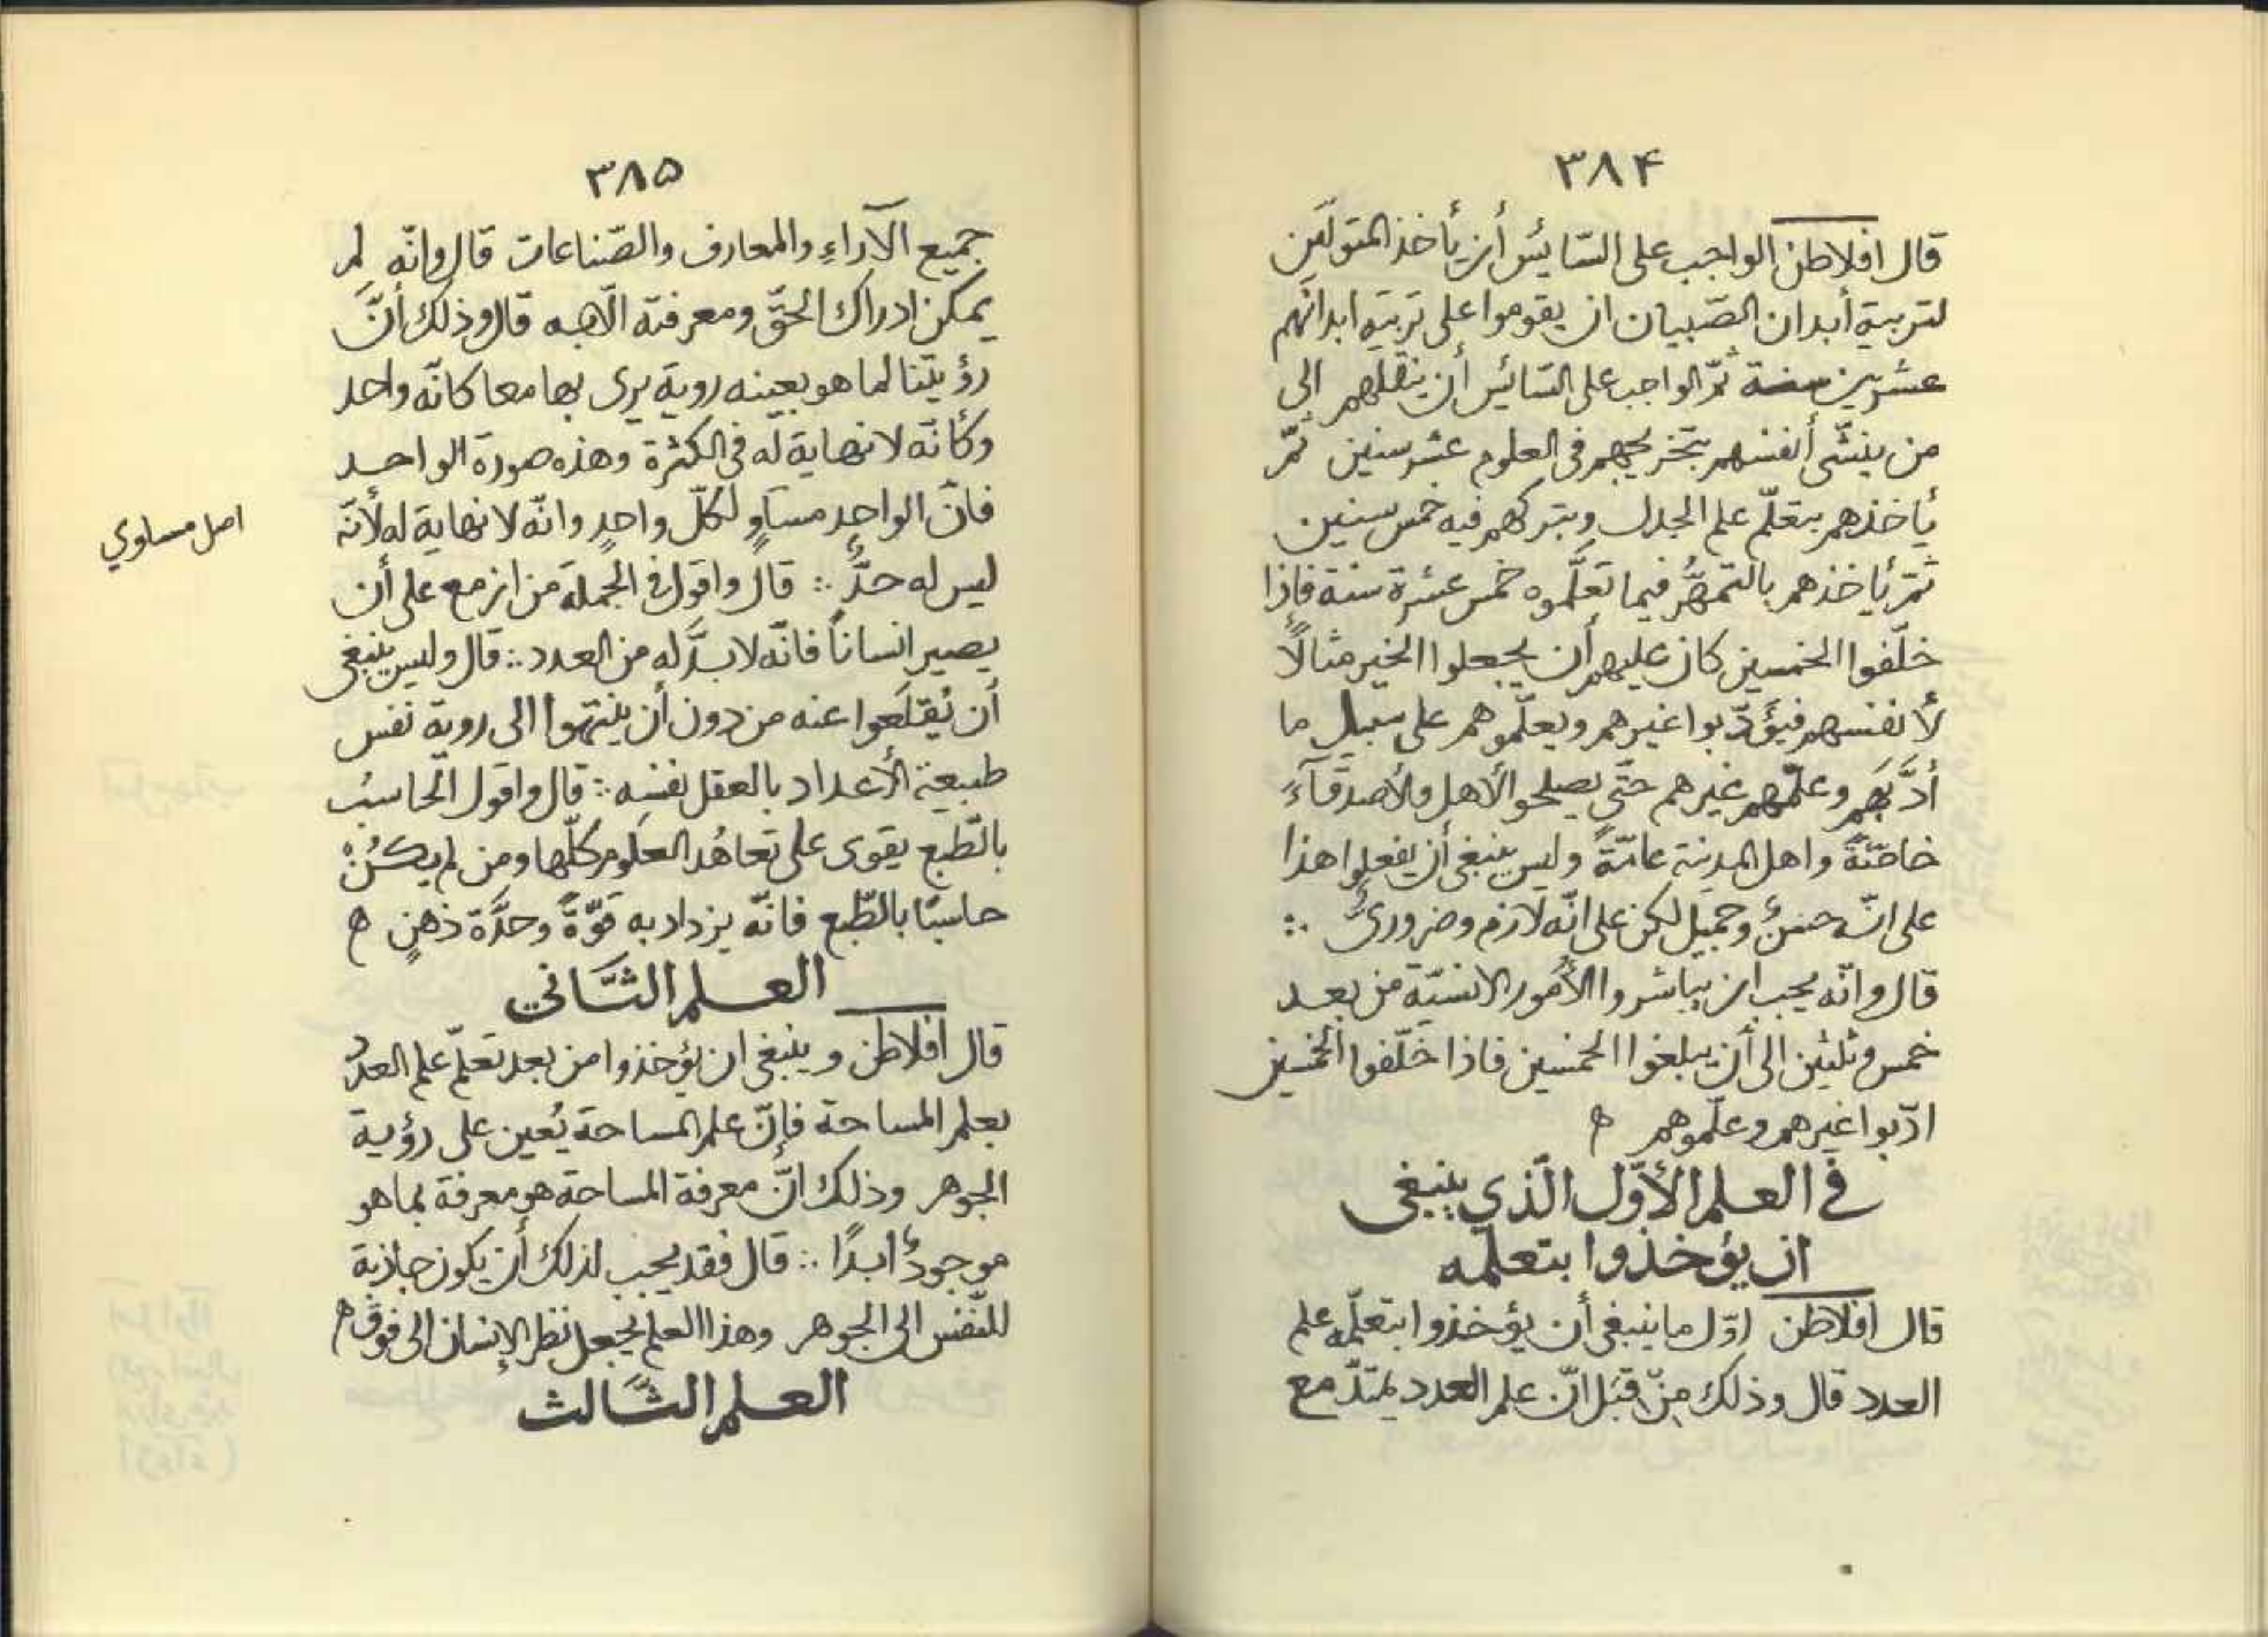 ٣٨۴
قال افلاطن الواجب على السّائس أن يأخذ المتولّين
لتربية أبدان الصّبيان ان يقوموا على تربية ابدانهم
عشرين سنة ثمّ الواجب على السّائس أن ينقلهم الى
من ينشّى أنفسهم بتخريجهم فى العلوم عشر سنين ثمّ
يأخذهم بتعلّم علم الجدل ويتركهم فيه خمس سنين
ثمّ يأخذهم بالتمهُّر فيما تعلّموه خمس عشرة سنة فإذا
خلّفوا الخمسين كان عليهم أن يجعلوا الخير مثالًا
لأنفسهم فيؤدّبوا غيرهم ويعلّموهم على سبيل ما
أدَّبَهم وعلّمهم غيرهم حتّى يصلحوا الأهل والأصدقآءَ
خاصّةً واهل المدينة عامّةً وليس ينبغى أن يفعلوا هذا
على انّه حسنٌ وجميل لكن على انّه لازم وضرورىٌّ ∴
قال وانّه يجب ان يباشروا الأمور الانسيّة من بعد
خمس وثلثين الى أن يبلغوا الخمسين فاذا خلّفوا الخمسين
ادّبوا غيرهم وعلّموهم ه
في العلم الأوّل الّذي ينبغى
ان يؤخذوا بتعلّمه
قال افلاطن اوّل ما ينبغى أن يؤخذوا بتعلّمه علم
العدد قال وذلك مِنْ قِبَل انّ علم العدد يمتدّ مع
٣٨۵
جميع الآراءِ والمعارف والصّناعات قال وانّه لم
يمكن ادراك الحقّ ومعرفته الّا به قال وذلك أنَّ
رؤيتنا لما هو بعينه روية يرى بها معا كانّه واحد
وكأنّه لا نهاية له فى الكثرة وهذه صورة الواحد
فانّ الواحد مساوٍ لكلّ واحدٍ وانّه لا نهاية له لأنّه
ليس له حدٌّ ∴ قال واقول فى الجملة من ازمع على أن
يصير انساناً فانّه لا بدَّ له من العدد ∴ قال وليس ينبغى
أن يُقلَعوا عنه من دون أن ينتهوا الى روية نفس
طبيعة الأعداد بالعقل نفسه ∴ قال واقول الحاسبُ
بالطّبع يقوى على تعاهُد العلوم كلّها ومن لم يكُنْ
حاسبًا بالطّبع فانّه يزداد به قوّةً وحدَّة ذهنٍ ه
العلم الثّاني
قال افلاطن وينبغى ان يؤخذوا من بعد تعلّم علم العدد
بعلم المساحة فإنّ علم المساحة يُعين على رؤية
الجوهر وذلك انَّ معرفة المساحة هو معرفة بما هو
موجودٌ ابدًا ∴ قال فقد يجب لذلك أن يكون جاذبة
للنّفس الى الجوهر وهذا العلم يجعل نظر الإنسان الى فوق ه
العلم الثّالث
اصل مساوي